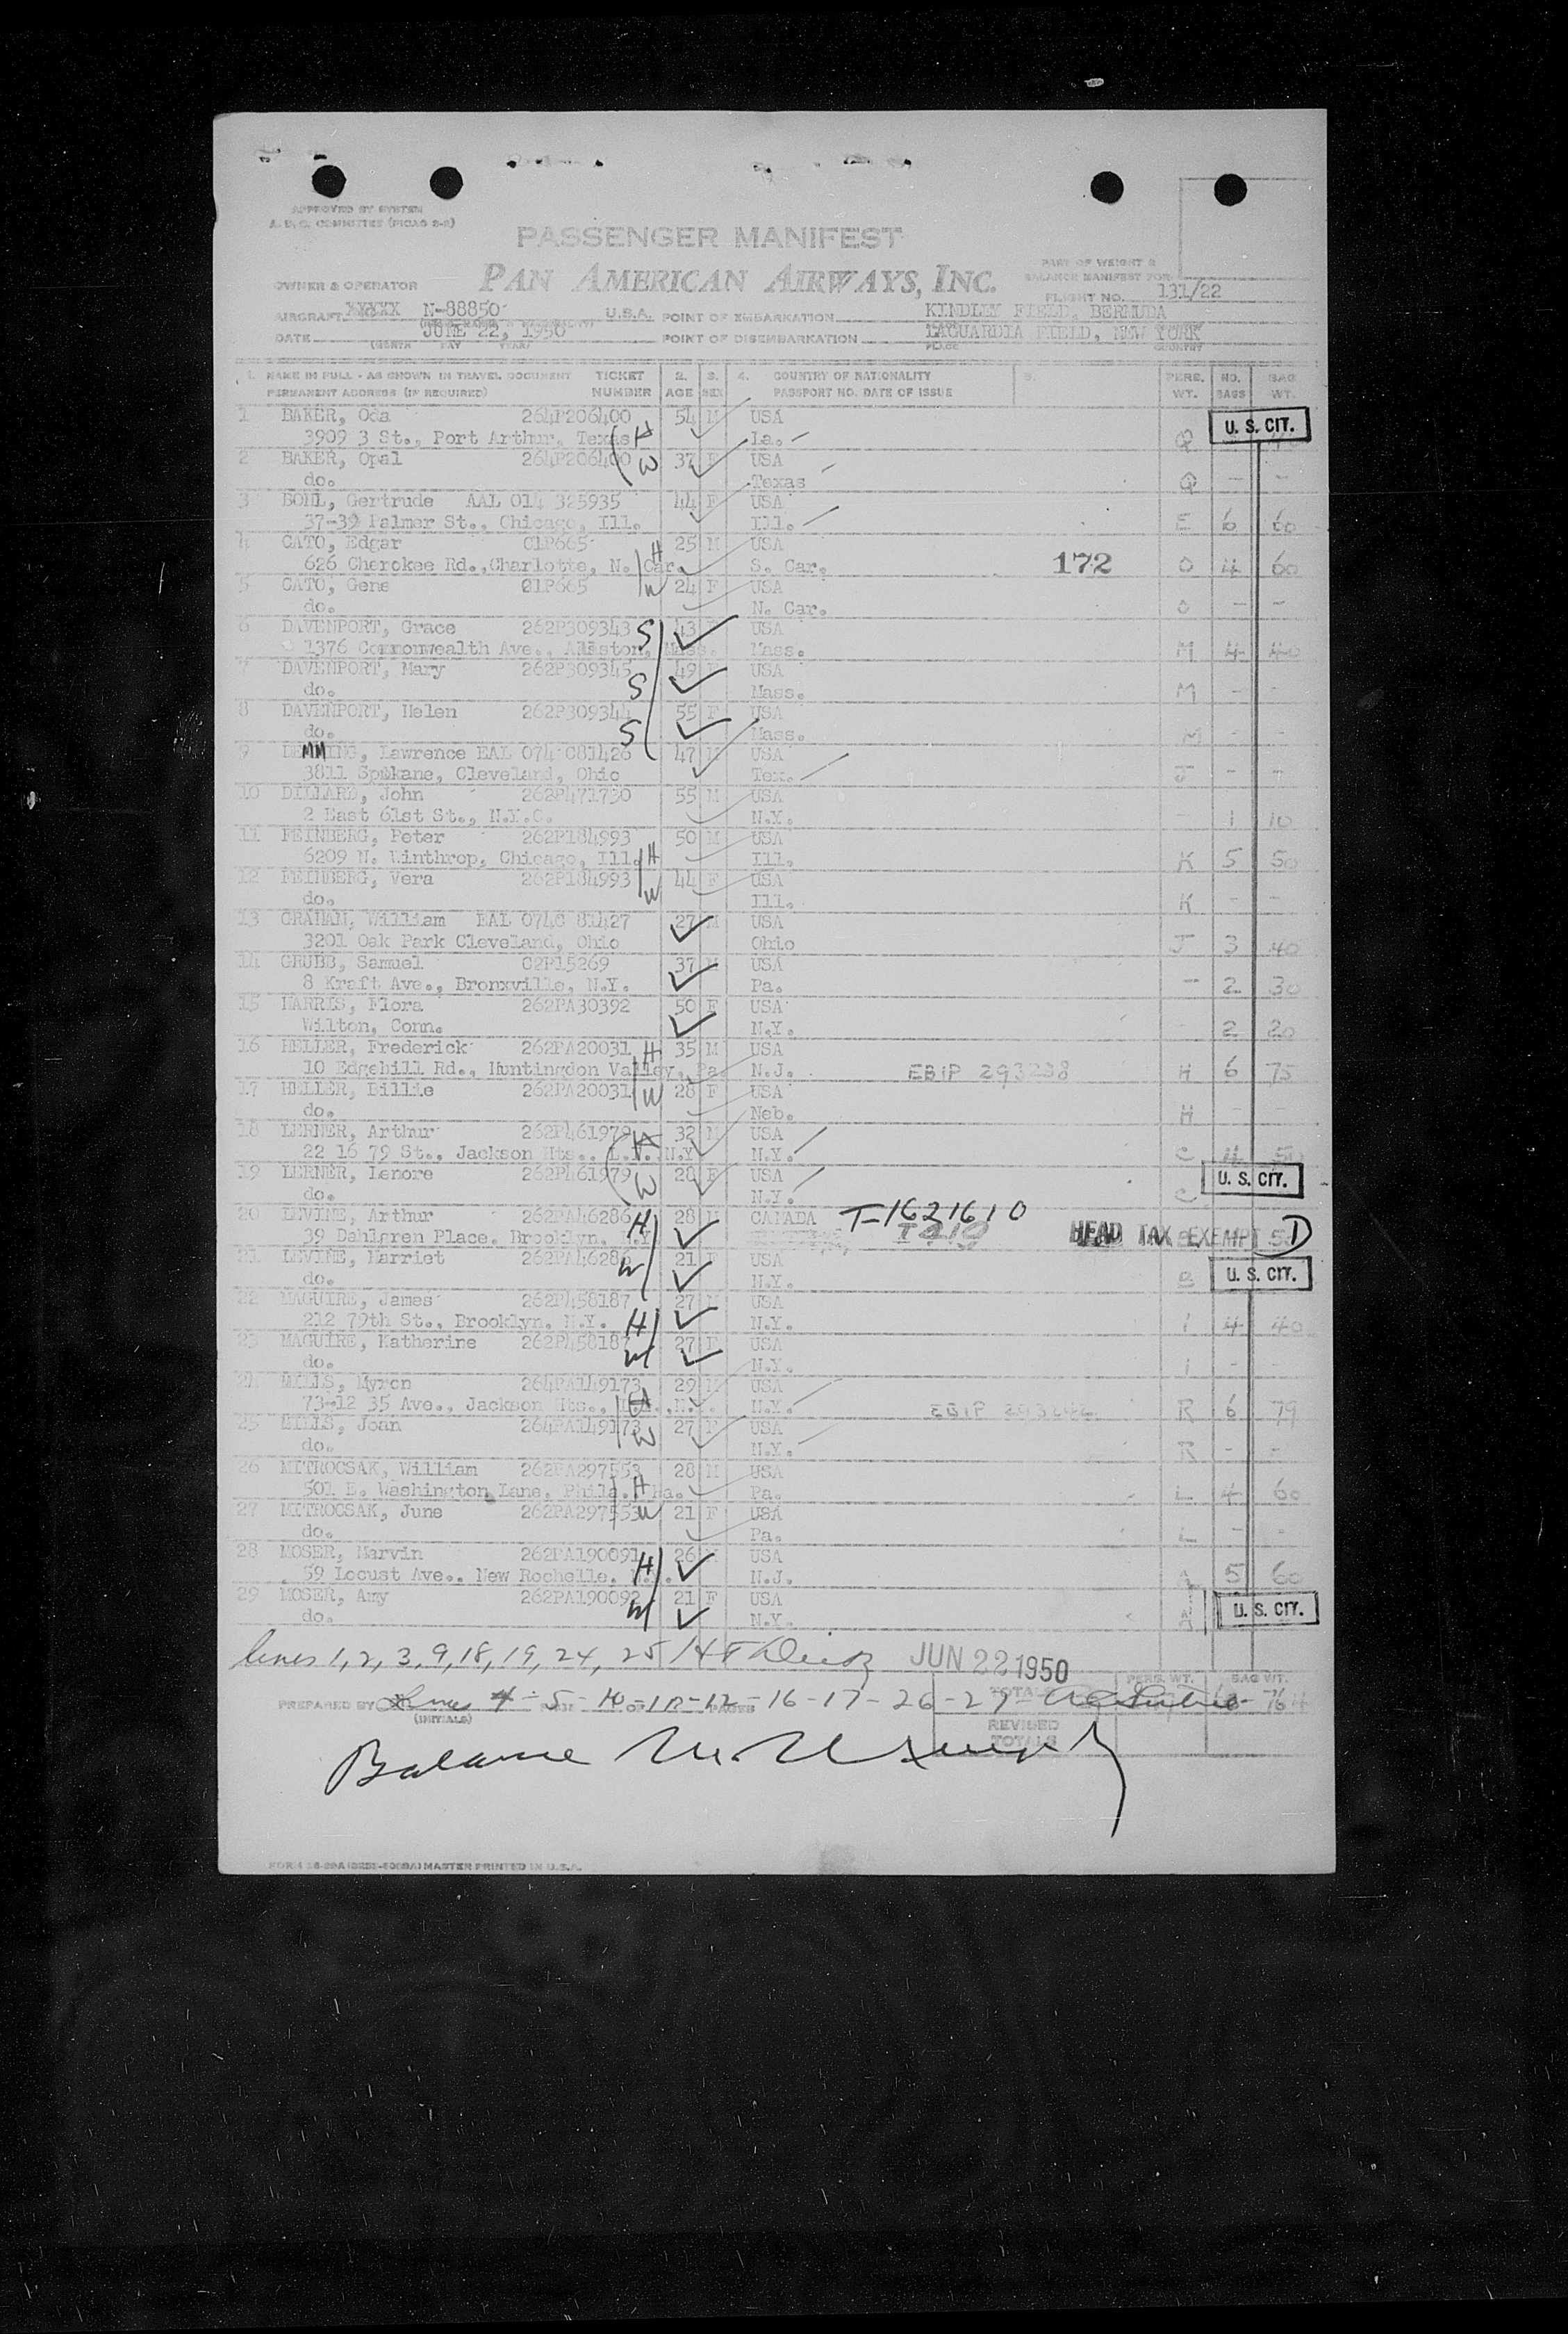 APPROVED BY SYSTEM
A.D.C. COMMITTEE (PICAO 2-2)
PASSENGER MANIFEST
PAN AMERICAN AIRWAYS, INC.
OWNER & OPERATOR
PART OF WEIGHT &
BALANCE MANIFEST FOR
FLIGHT NO. 131/22
AIRCRAFT XXXXX N-88850 U.S.A. POINT OF EMBARKATION KINDLEY FIELD, BERMUDA
DATE JUNE 22, 1950 POINT OF DISEMBARKATION LAGUARDIA FIELD, NEW YORK
(MONTH DAY YEAR) PLACE COUNTRY
1. NAME IN FULL - AS SHOWN IN TRAVEL DOCUMENT TICKET 2. 3. 4. COUNTRY OF NATIONALITY 5. PERS. NO. BAG
PERMANENT ADDRESS (IF REQUIRED) NUMBER AGE SEX PASSPORT NO. DATE OF ISSUE WT. BAGS WT.
1 BAKER, Oda 264P206400 54 M USA
3909 3 St., Port Arthur, Texas H La. Q U. S. CIT.
2 BAKER, Opal 264P206400 W 37 F USA
do. Texas Q - -
3 BOHL, Gertrude AAL 014 325935 44 F USA
37-39 Palmer St., Chicago, Ill. Ill. E 6 60
4 CATO, Edgar 01P665 H 25 M USA
626 Cherokee Rd.,Charlotte, N. Car. S. Car. 172 O 4 60
5 CATO, Gene 01P665 W 24 F USA
do. N. Car. O - -
6 DAVENPORT, Grace 262P309343 S 43 F USA
1376 Commonwealth Ave., Allston, Mass. Mass. M 4 40
7 DAVENPORT, Mary 262P309345 S 49 F USA
do. Mass. M - -
8 DAVENPORT, Helen 262P309344 S 55 F USA
do. Mass. M - -
9 DEMMING, Lawrence EAL 074 C81426 47 M USA
3811 Spokane, Cleveland, Ohio Tex. J - -
10 DILLARD, John 262P471730 55 M USA
2 East 61st St., N.Y.C. N.Y. - 1 10
11 FEINBERG, Peter 262P184993 50 M USA
6209 N. Winthrop, Chicago, Ill. H Ill. K 5 50
12 FEINBERG, Vera 262P184993 W 44 F USA
do. Ill. K - -
13 GRAHAM, William EAL 074C 81427 27 M USA
3201 Oak Park Cleveland, Ohio Ohio J 3 40
14 GRUBB, Samuel 02P15269 37 M USA
8 Kraft Ave., Bronxville, N.Y. Pa. - 2 30
15 HARRIS, Flora 262PA30392 50 F USA
Wilton, Conn. N.Y. - 2 20
16 HELLER, Frederick 262PA20031 H 35 M USA
10 Edgehill Rd., Huntingdon Valley, Pa N.J. EBIP 293238 H 6 75
17 HELLER, Billie 262PA20031 W 28 F USA
do. Neb. H - -
18 LERNER, Arthur 262P461979 H 32 M USA
22 16 79 St., Jackson Hts., L.I. N.Y N.Y. C 4 50
19 LERNER, Lenore 262P461979 W 28 F USA
do. N.Y. C U. S. CIT.
20 LEVINE, Arthur 262PA46286 H 28 M CANADA T-1621610
39 Dahlgren Place, Brooklyn, N.Y. HEAD TAX EXEMPT 1
21 LEVINE, Harriet 262PA46286 W 21 F USA
do. N.Y. B U. S. CIT.
22 MAGUIRE, James 262P458187 27 M USA
212 79th St., Brooklyn, N.Y. H N.Y. I 4 40
23 MAGUIRE, Katherine 262P458187 W 27 F USA
do. N.Y. I - -
24 MILLS, Myron 264PA149173 29 M USA
73-12 35 Ave., Jackson Hts., H N.Y. EBIP R 6 79
25 MILLS, Joan 264PA149173 W 27 F USA
do. N.Y. R - -
26 MITROCSAK, William 262PA297553 28 M USA
501 E. Washington Lane, Phila. H Pa. Pa. L 4 60
27 MITROCSAK, June 262PA297553 W 21 F USA
do. Pa. L - -
28 MOSER, Marvin 262PA190091 H 26 M USA
59 Locust Ave., New Rochelle, N.Y. N.J. A 5 60
29 MOSER, Amy 262PA190092 W 21 F USA
do. N.Y. A U. S. CIT.
lines 1, 2, 3, 9, 18, 19, 24, 25 JUN 22 1950
PERS. WT. BAG WT.
PREPARED BY Lines 4-5-10-11-12-16-17-26-27 TOTALS 764
(INITIALS) PAGE OF PAGES
REVISED
TOTALS
Balance
MASTER PRINTED IN U.S.A.